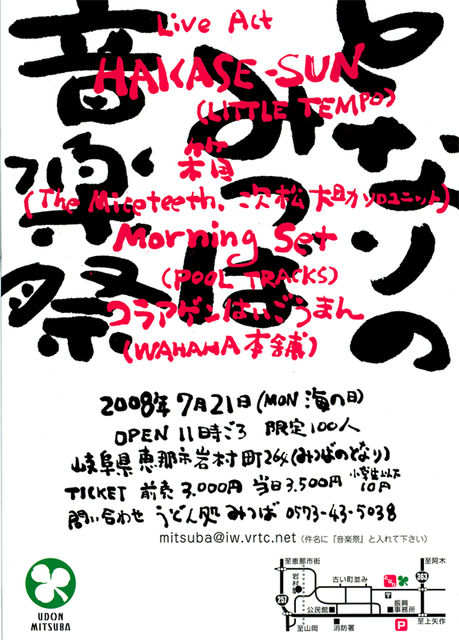 となりの
みつば
音楽祭
Live Act
HAKASE-SUN
(LITTLE TEMPO)
(The Miceteeth, 次松大助ソロユニット)
Morning Set
(POOL TRACKS)
コラアゲンはいごうまん
(WAHAHA本舗)
2008年7月21日(MON 海の日)
OPEN 11時ごろ 限定100人
岐阜県恵那市岩村町264(みつばのとなり)
TICKET 前売3.000円 当日3.500円 小学生以下10円
問い合わせ うどん処 みつば 0573-43-5038
mitsuba@iw.vrtc.net (件名に『音楽祭』と入れて下さい)
UDON
MITSUBA
至恵那市街
至阿木
岩村駅
古い町並み
363
257
公民館
振興事務所
消防署
P
至山岡
至上矢作